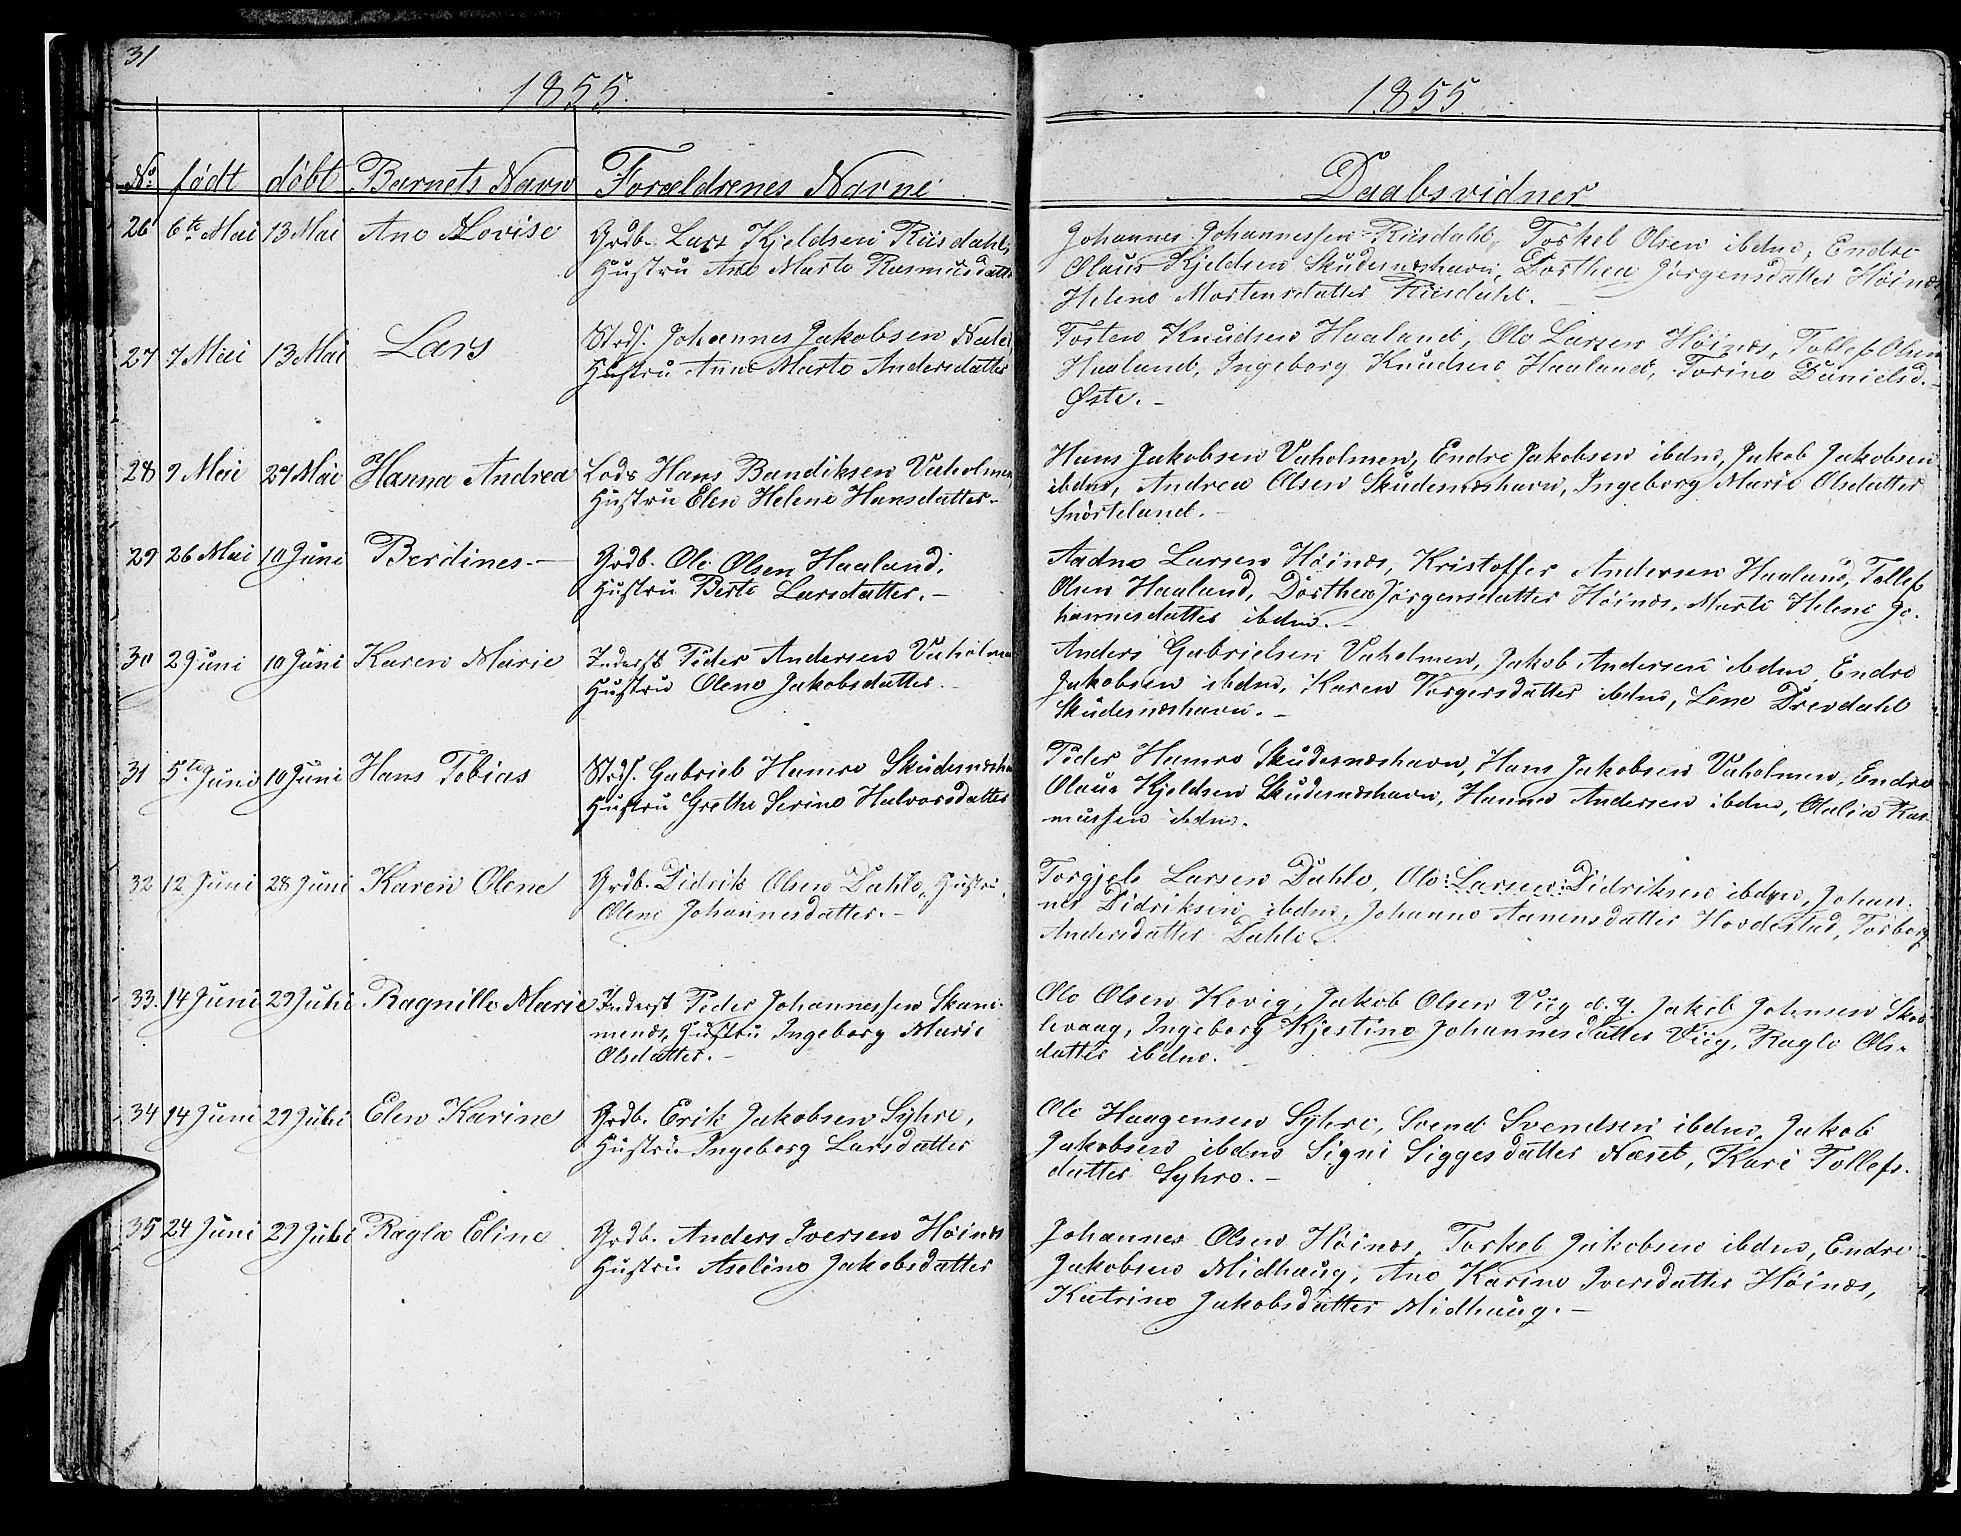 31
1855.
No. født døbt Barnets Navn Forældrenes Navne
26 6te Mai 13 Mai Ane Lovise Grdb. Lars Kjeldsen Riisdahl,
Hustru Ane Marte Rasmusdatter
27 7 Mai 13 Mai Lars Strds. Johannes Jakobsen
Hustru Anne Marte Andersdatter
28 9 Mai 27 Mai Hanna Andrea Lods Hans Bandiksen Vaholmen
Hustru Elen Helene Hansdatter.-
29 26 Mai 10 Juni Berdines.- Grdb. Ole Olsen Haaland,
Hustru Berte Larsdatter.-
30 2 Juni 10 Juni Karen Marie Inderst Peder Andersen Vaholmen
Hustru Olene Jakobsdatter.
31 5te Juni 10 Juni Hans Tobias Strds. Gabriel Hamre Skudesneshavn
Hustru Grethe Serine Halvorsdatter
32 12 Juni 28 Juni Karen Olene Grdb. Didrik Olsen Dahle, Hustru
Olene Johannesdatter.-
33. 14 Juni 29 Juli Ragnille Marie Inderst Peder Johannessen Skani-
menes, Hustru Ingeborg Marie
Olsdatter.-
34 14 Juni 29 Juli Elen Karine Grdb. Erik Jakobsen Syhre,
Hustru Ingeborg Larsdatter
35 24 Juni 29 Juli Ragla Eline Grdb. Anders Iversen Høines
Hustru Aseline Jakobsdatter
1855.
Daabsvidner
Johannes Johannessen Riisdahl, Torkel Olsen ibdm, Endre
Olaus Kjeldsen Skudesneshavn, Dorthea Jørgensdatter Høines
Helene Mortensdatter Riisdahl.
Torsten Knudsen Haaland, Ole Larsen Høines, Tollef Olsen
Haaland, Ingeborg Knudsen Haaland, Torine Danielsd.-
Øste.-
Hans Jakobsen Vaholmen, Endre Jakobsen ibdm, Jakob Jakobsen
ibdm, Andrea Olsen Skudesneshavn, Ingeborg Marie Olsdatter
Snørteland.-
Aadne Larsen Høines, Kristoffer Andersen Haaland, Tollef
Olsen Haaland, Dorthea Jørgensdatter Høines, Marte Helene Jo-
hannesdatter ibdm.-
Anders Gabrielsen Vaholmen, Jakob Andersen ibdm, Endre
Jakobsen ibdm, Karen Torgersdatter ibdm, Lene Drevdahl
Skudesneshavn.-
Peder Hamre Skudesneshavn, Hans Jakobsen Vaholmen, Endre
Olaus Kjeldsen Skudesneshavn, Hanne Andersen ibdm, Olalia Ras-
mussen ibdm.
Torgjels Larsen Dahle, Ole :Larsen: Didriksen ibdm, Johan-
nes Didriksen ibdm, Johanne Aanensdatter Hovdestad, Torborg
Andersdatter Dahle.
Ole Olsen Kovig, Jakob Olsen Viig d. y. Jakob Johnsen Skaa-
levaag, Ingeborg Kjestine Johannesdatter Viig, Ragle Ols-
datter ibdm.
Ole Haagensen Syhre, Svend Svendsen ibdm, Jakob
Jakobsen ibdm Signi Siggesdatter Næset, Kari Tollefs-
datter Syhre.-
Johannes Olsen Høines, Torkel Jakobsen ibdm, Endre
Jakobsen Midhaug, Ane Karine Iversdatter Høines,
Katrine Jakobsdatter Midhaug.-